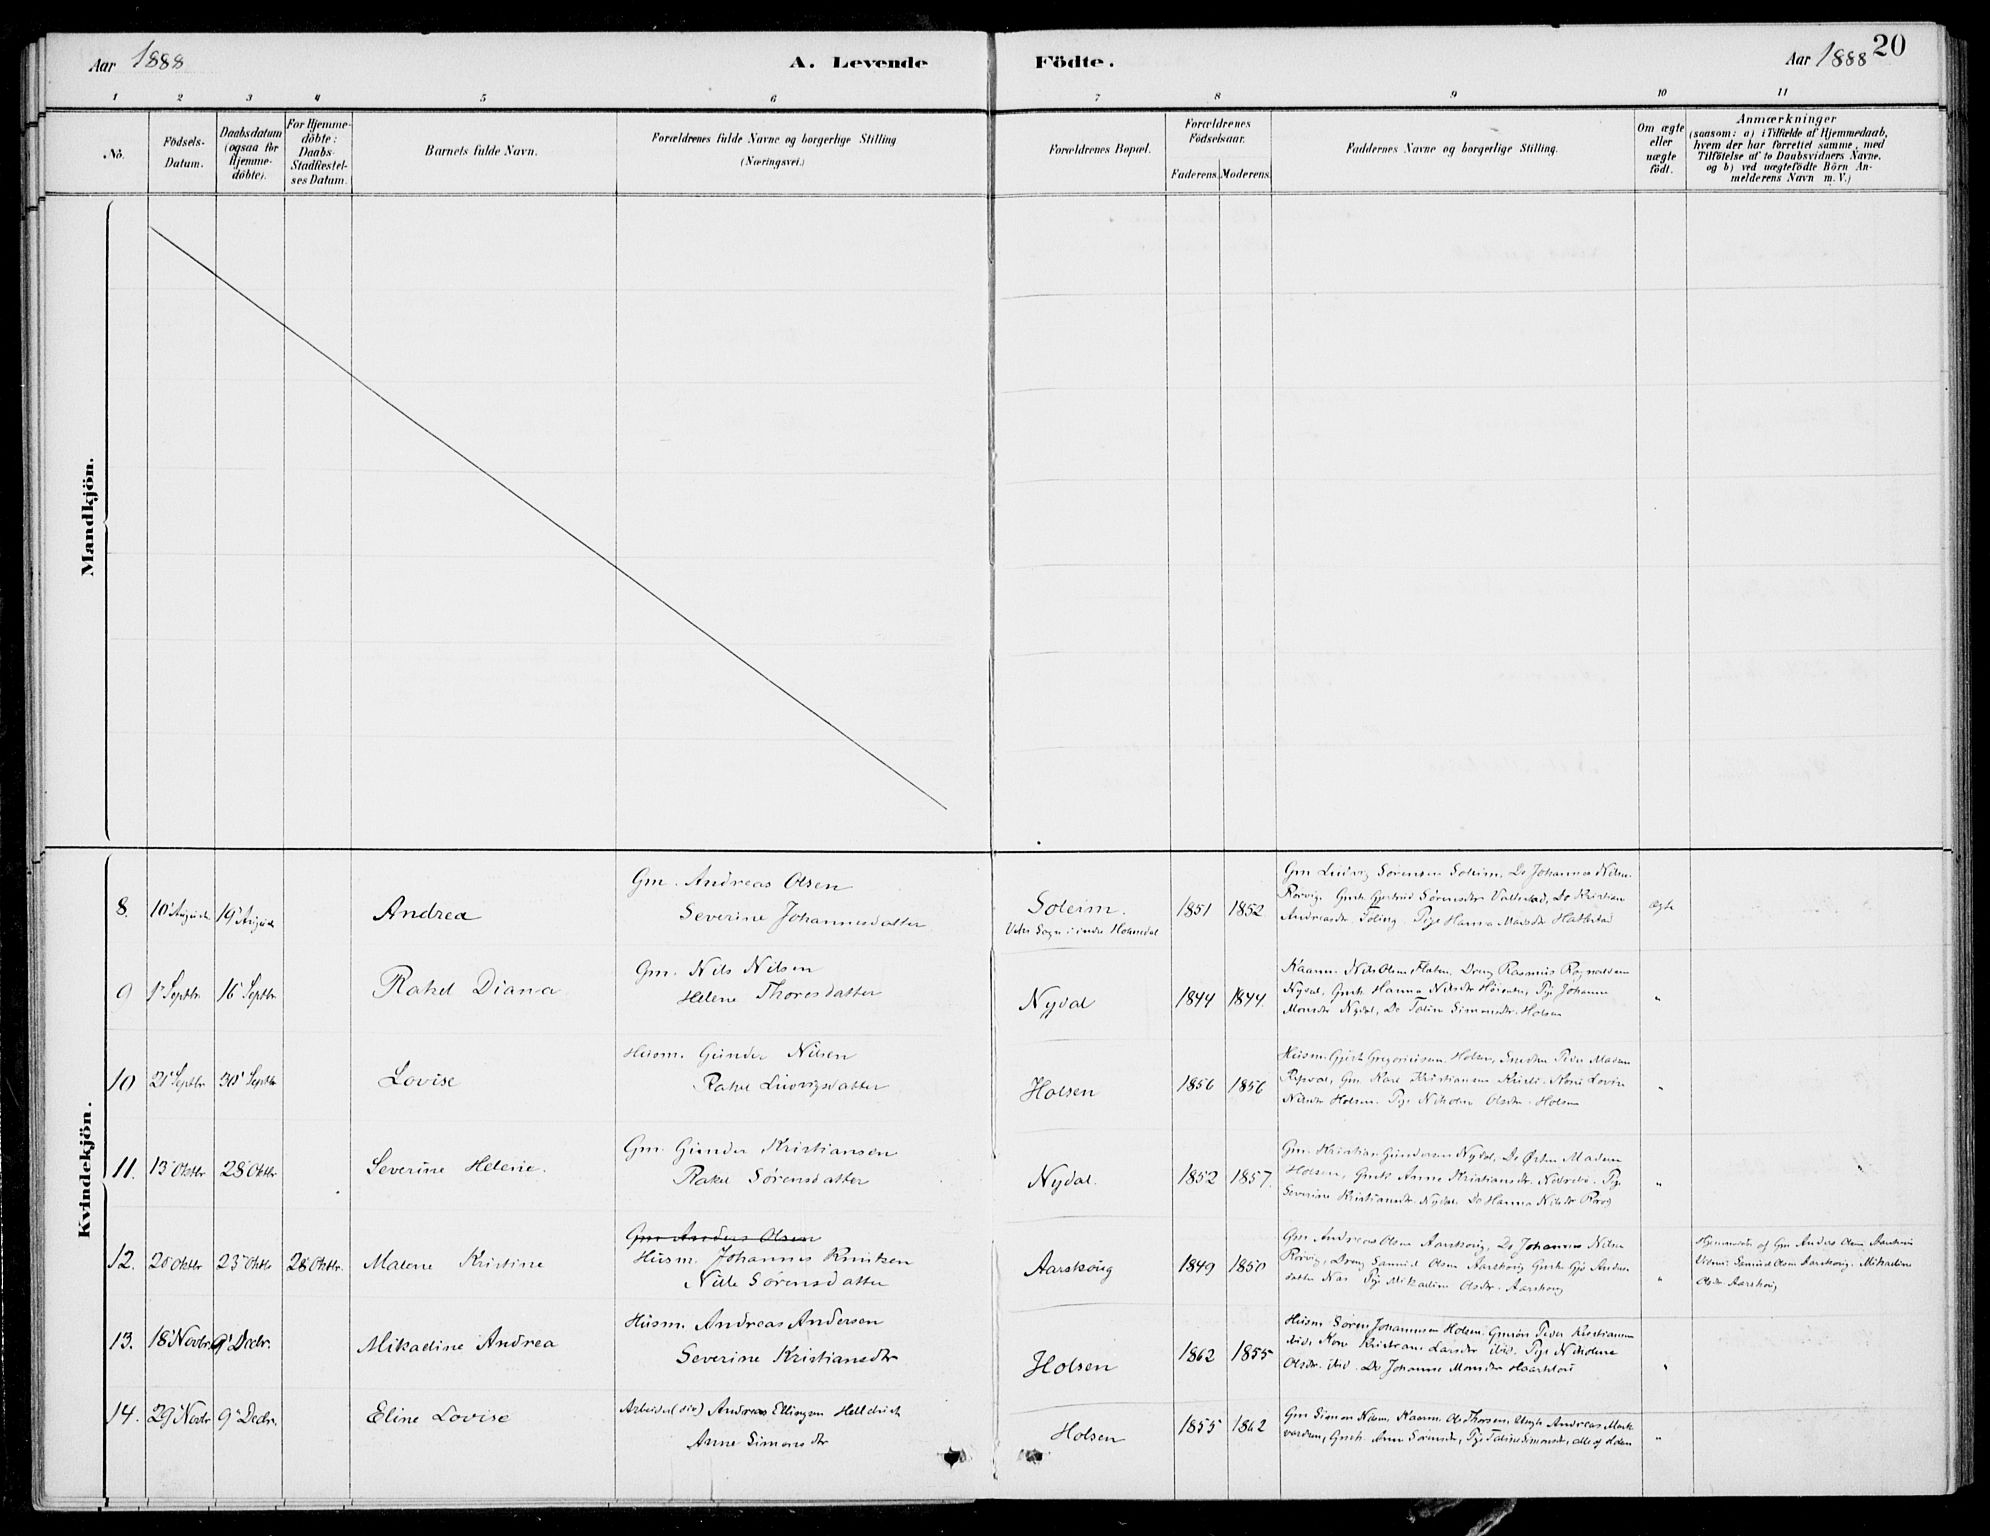 Aar 1888
A. Levende Födte.
Aar 1888
20
1 2 3 4 5 6 7 8 9 10 11
No.
Födsels-
Datum.
Daabsdatum
(ogsaa for
Hjemme-
döbte).
For Hjemme-
döbte:
Daabs-
Stadfæstel-
ses Datum.
Barnets fulde Navn.
Forældrenes fulde Navne og borgerlige Stilling
(Næringsvei.)
Forældrenes Bopæl.
Forældrenes
Födselsaar.
Faderens. Moderens.
Faddernes Navne og borgerlige Stilling.
Om ægte
eller
uægte
födt.
Anmærkninger
(saasom: a) i Tilfælde af Hjemmedaab,
hvem der har forrettet samme, med
Tilföielse af to Daabsvidners Navne,
og b) ved uægtefödte Börn An-
melderens Navn m. V.)
Mandkjön.
Kvindekjön.
8. 10 August 19 August
Andrea
Gm. Andreas Olsen
Severine Johannesdatter
Soleim.
Sogn i indre Holmedal
1851 1852
Gm Ludvig Sørensen Soleim, Do Johannes Nilsen
Rørvig, Gmk Gjertrud Sørensdtr Do Kristian
Pige Hanna Madsdtr Hatlestad
ægte
9 1 Septbr. 16 Septbr.
Rakel Diana
Gm. Nils Nilsen
Helene Thoresdatter
Nydal
1844 1844.
Kaarm. Nils Olsen Flaten, Dreng Rasmus Rognaldsen
Nydal, Gmk Hanna Nilsdtr Pige Johanne
Monsdtr Nydal, Do Simonsdtr. Holsen
"
10 21 Septbr 30 Septbr
Lovise
Husm. Gunder Nilsen
Rakel Ludvigsdatter
Holsen
1856 1856
Husm. Gregoriussen Holsen, Peder Madsen
Gm Karl Kristiansen Kone Lovise
Nilsdtr Holsen. Pige Nikoline Olsdtr. Holsen
"
11. 13 Oktbr 28 Oktbr
Severine Helene.
Gm. Gunder Kristiansen
Rakel Sørensdatter
Nydal.
1852 1857.
Gm. Kristian Gundersen Nydal, Do Madsen
Holsen, Gmk Anne Kristiansdtr. Pige
Severine Kristiansdtr. Nydal. Do Hanna Nilsdtr
"
12. 20 Oktbr 23 Oktbr 28 Oktbr.
Malene Kristine
Gm Anders Olsen
Husm. Johannes Knutsen
Nille Sørensdatter
Aarskoug
1849 1850
Gm Andreas Olsen Aarskoug, Do Johannes Nilsen
Rørvig, Dreng Samuel Olsen Aarskoug Gmk Anders
datter Nes Pige Mikadine Olsdtr. Aarskoug
"
Hjemmedøbt af Gm Anders Olsen Aarskoug
Vidner: Samuel Olsen Aarskoug. Mikadine
Olsdtr Aarskoug
13. 18 Novbr. 9 Decbr.
Mikadine Andrea
Husm. Andreas Andersen
Severine Kristiansdtr
Holsen
1862 1855
Husm Søren Johannesen Holsen. Peder Kristiansen
ibid. Kone Larsdtr ibid. Pige Nikoline
Olsdtr. ibid. Do Johanne Monsdtr
"
14. 29 Novbr 9 Decbr.
Eline Lovise
Arbeider Andreas Ellingsen
Anne Simonsdtr
Holsen
1855 1862
Gm Simon Nilsen, Kaarm. Ole Thorsen, Andreas Mark
Gmk Anne Sørensdtr, Pige Simonsdtr, alle af Holsen
"